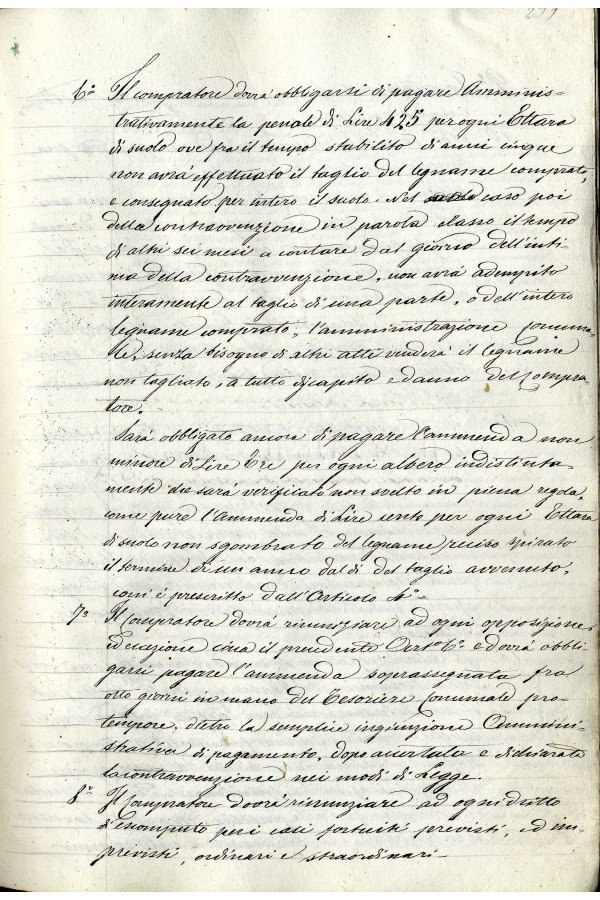 6° Il compratore dovrà obbligarsi di pagare Amminis-
trativamente la penale di Lire 425 per ogni Ettara
di suolo ove fra il tempo stabilito di anni cinque
non avrà effettuato il taglio del legname comprato,
e consegnato per intero il suolo. Nel caso poi
della contravvenzione in parola elasso il tempo
di altri sei mesi a contare dal giorno dell'inti-
ma della contravvenzione, non avrà adempito
interamente al taglio di una parte, o dell'intero
legname comprato, l'amministrazione comuna-
le, senza bisogno di altri atti venderà il legname
non tagliato, a tutto discapito e danno del Compra-
tore.
Sarà obbligato ancora di pagare l'ammenda non
minore di Lire Tre per ogni albero indistinta-
mente che sarà verificato non svelto in piena regola,
come pure l'ammenda di Lire cento per ogni Ettara
di suolo non sgombrato del legname reciso spirato
il termine di un anno dal dì del taglio avvenuto,
com'è prescritto dall'Articolo 4°-
7° Il Compratore dovrà rinunziare ad ogni opposizione,
ed eccezione circa il precedente Art° 6° e dovrà obbli-
garsi pagare l'ammenda soprassegnata fra
otto giorni in mano del Tesoriere Comunale pro-
tempore, dietro la semplice ingiunzione Ammini-
strativa di pagamento, dopo accertata e dichiarata
la contravvenzione nei modi di Legge.
8° Il Compratore dovrà rinunziare ad ogni dritto
d'escomputo per i casi fortuiti previsti, ed im-
previsti, ordinari e straordinari-